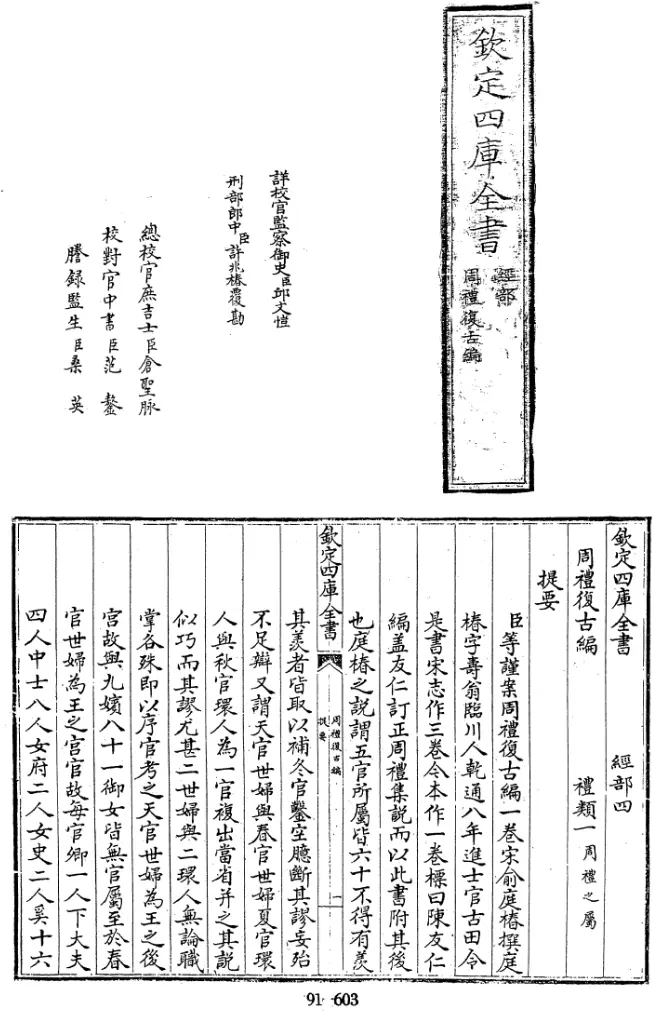 欽定四庫全書
經部
周禮復古編
詳校官監察御史臣邱文愷
刑部郎中臣許兆椿覆勘
總校官庶吉士臣倉聖脉
校對官中書臣范鏊
謄錄監生臣桑英
欽定四庫全書 經部四
周禮復古編 禮類一周禮之屬
提要
臣等謹案周禮復古編一卷宋俞庭椿撰庭
椿字壽翁臨川人乾通八年進士官古田令
是書宋志作三卷今本作一卷標曰陳友仁
編盖友仁訂正周禮集説而以此書附其後
也庭椿之説謂五官所屬皆六十不得有羨
欽定四庫全書
周禮復古編
提要
一
其羨者皆取以補冬官鑿空臆斷其謬妄殆
不足辯又謂天官世婦與春官世婦夏官環
人與秋官環人為一官複出當省并之其説
似巧而其謬尤甚二世婦與二環人無論職
掌各殊即以序官考之天官世婦為王之後
宫故與九嬪八十一御女皆無官屬至於春
官世婦為王之宫官故每官卿一人下大夫
四人中士八人女府二人女史二人奚十六
91-603